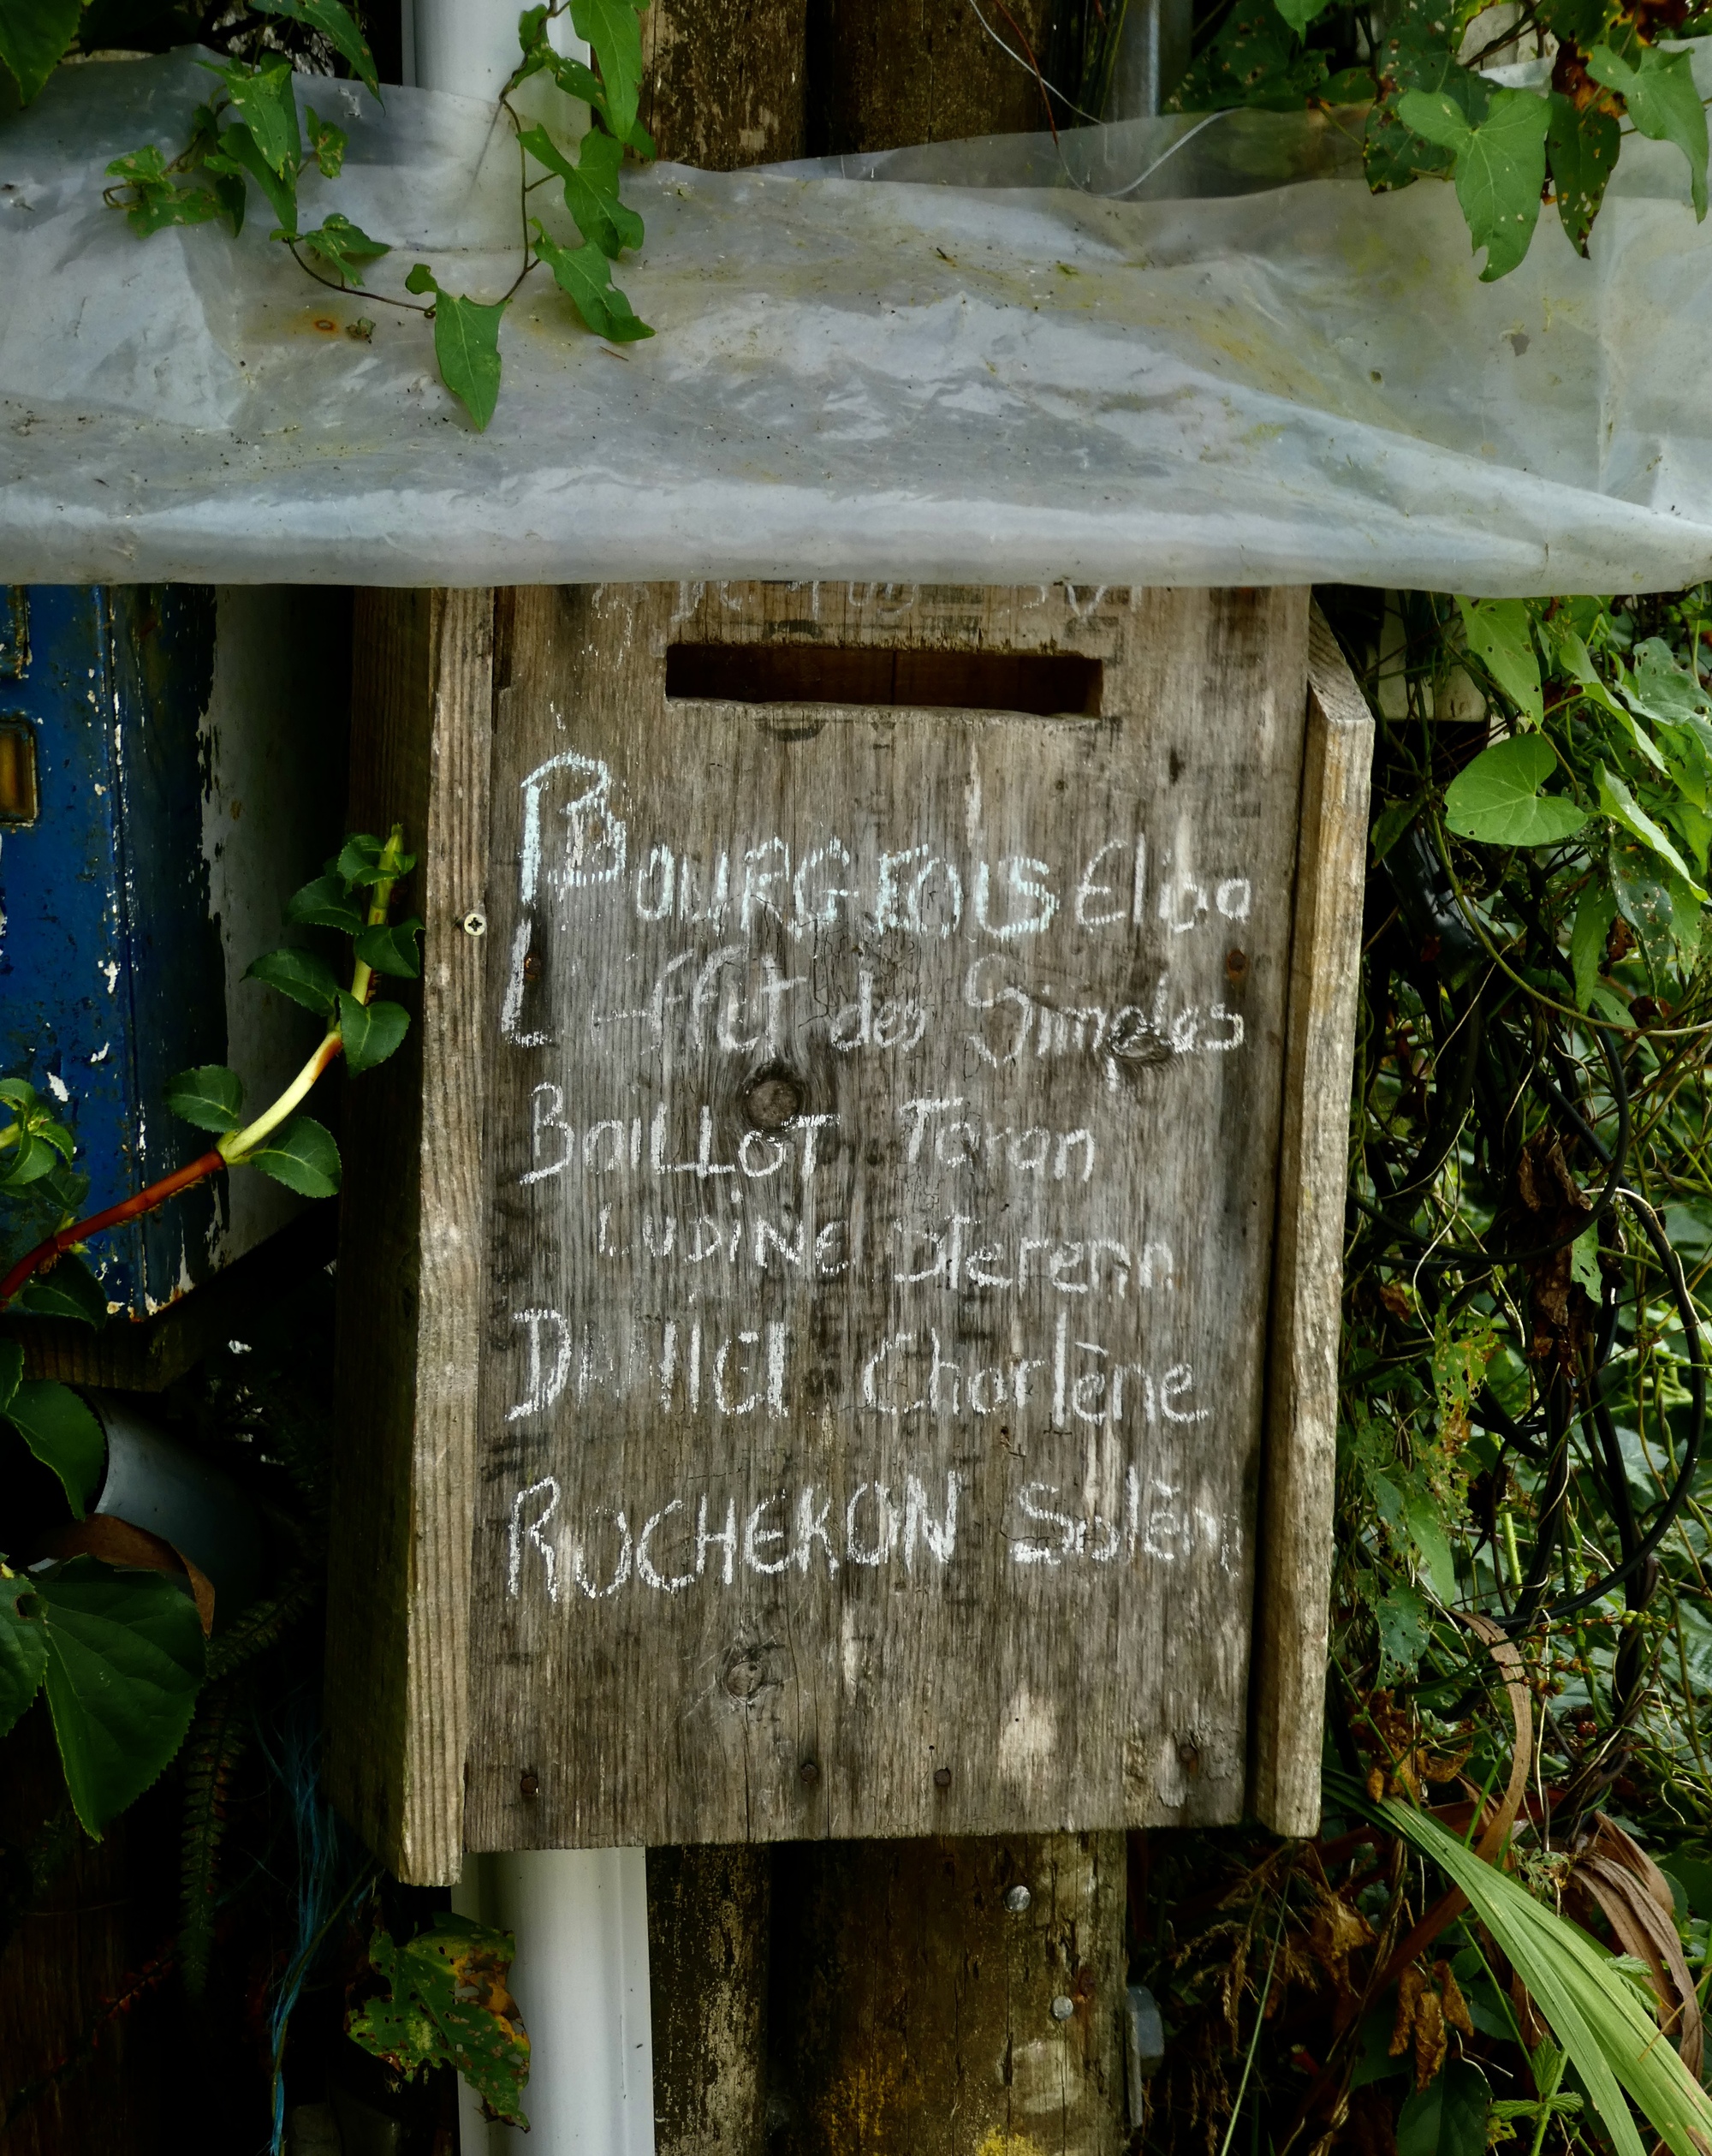 BOURGEOIS Elisa
L'Effet des Simples
BaiLLOT Taran
LUDINE Sterenn
Charlène
ROCHERON Solèn